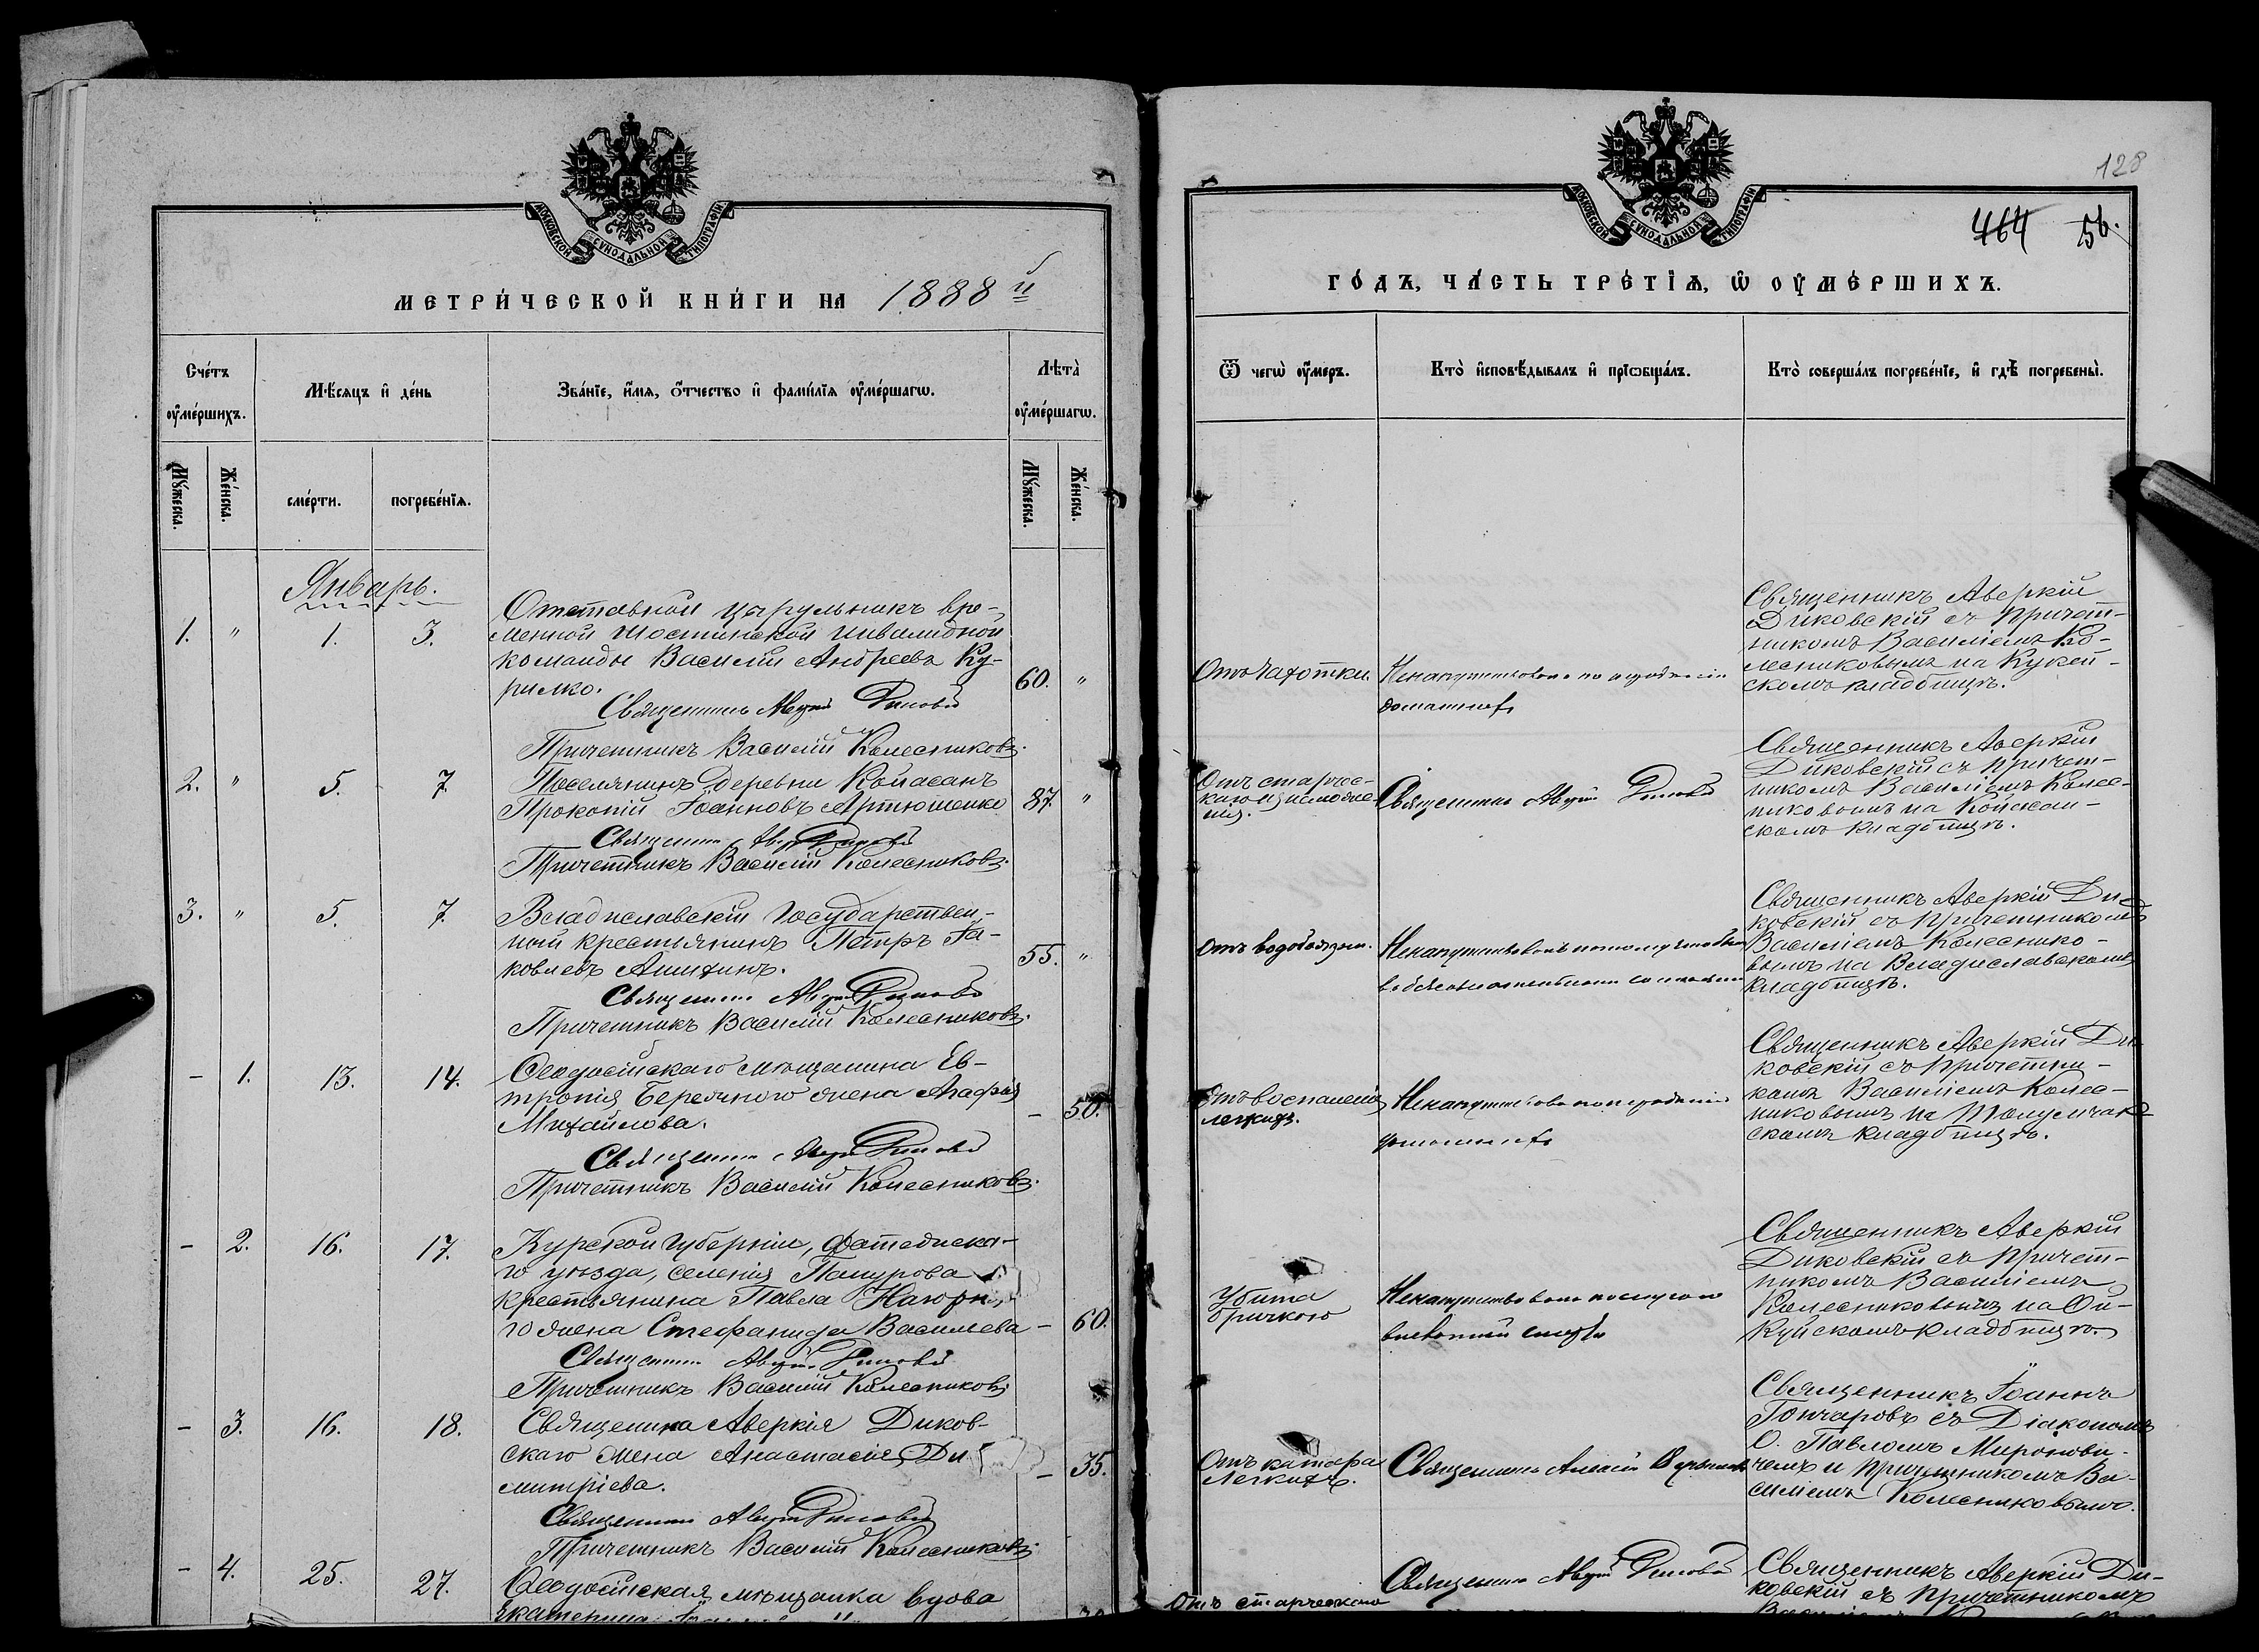 МОСКОВСКОЙ СѴНОДАЛЬНОЙ ТИПОГРАФІИ
МЕТРИ́ЧЕСКОЙ КНИ́ГИ НА 1888 й
Сче́тъ оу҆ме́ршихъ.
Мѣ́сяцъ и҆ де́нь
Зва́нїе, и҆́мя, ѻ҆́тчество и҆ фами́лїя оу҆ме́ршагѡ.
Лѣта̀ оу҆ме́ршагѡ.
Мꙋ́жеска.
Же́нска.
сме́рти.
погребе́нїя.
Мꙋ́жеска.
Же́нска.
Январь.
1. " 1. 3.
Отставной цырульникъ вре-
менной Шостинской инвалидной
команды Василій Андреевъ Ку-
рилко.
60. "
Священникъ Аверкій Диковскій
Причетникъ Василій Колесниковъ.
2. " 5. 7.
Поселянинъ деревни Койасанъ
Прокопій Іоанновъ Артюшенко
87. "
Священникъ Аверкій Диковскій
Причетникъ Василій Колесниковъ.
3. " 5. 7.
Владиславскій Государствен-
ный крестьянинъ Петръ Іа-
ковлевъ Анихинъ.
55. "
Священникъ Аверкій Диковскій
Причетникъ Василій Колесниковъ.
- 1. 13. 14.
Ѳеодосійскаго мѣщанина Ев-
тропія Бережного жена Агафія
Михайлова.
- 50.
Священникъ Аверкій Диковскій
Причетникъ Василій Колесниковъ.
- 2. 16. 17.
Курской губерніи, Фатежска-
го уѣзда, селенія
крестьянина Павла Нагорн
го жена Стефанида Васильева
- 60.
Священникъ Аверкій Диковскій
Причетникъ Василій Колесниковъ.
- 3. 16. 18.
Священника Аверкія Диков-
скаго жена Анастасія Ди-
митріева.
- 35.
Священникъ Аверкій Диковскій
Причетникъ Василій Колесниковъ.
- 4. 25. 27.
Ѳеодосійская мѣщанка вдова
Екатерина
МОСКОВСКОЙ СѴНОДАЛЬНОЙ ТИПОГРАФІИ
128
464 56.
ГО́ДЪ, ЧА́СТЬ ТРЕ́ТЇЯ, Ѡ҆ ОУ҆МЕ́РШИХЪ.
Ѿ чегѡ̀ оу҆́меръ.
Кто̀ и҆сповѣ́дывалъ и҆ прїѡбща́лъ.
Кто̀ соверша́лъ погребе́нїе, и҆ гдѣ̀ погребены̀.
Отъ чахотки.
Ненапутствованъ по нерадѣнію
домашнихъ
Священникъ Аверкій
Диковскій съ Причет-
никомъ Василіемъ Ко-
лесниковымъ на Кукей-
скомъ кладбищѣ.
Отъ старчес-
каго изнеможе-
нія.
Священникъ Аверкій Диковскій
Священникъ Аверкій
Диковскій съ Причет-
никомъ Василіемъ Колес-
никовымъ на Койасан-
скомъ кладбищѣ.
Отъ водобоязни.
Ненапутствованъ потому что былъ
въ безсознательномъ состояніи
Священникъ Аверкій Ди-
ковскій съ Причетникомъ
Василіемъ Колеснико-
вымъ на Владиславскомъ
кладбищѣ.
Отъ воспаленія
легкихъ.
Ненапутствована по нерадѣнію
домашнихъ
Священникъ Аверкій Ди-
ковскій съ Причетни-
комъ Василіемъ Колес-
никовымъ на
скомъ кладбищѣ.
Убита
бричкою
Ненапутствована по случаю
внезапной смерти
Священникъ Аверкій
Диковскій съ Причет-
никомъ Василіемъ
Колесниковымъ на Ой-
куйскомъ кладбищѣ.
Отъ катара
легкихъ.
Священникъ Алексій
Священникъ Іоаннъ
Гончаровъ съ Діакономъ
О. Павломъ Миронови-
чемъ и Причетникомъ Ва-
силіемъ Колесниковымъ.
Отъ старческаго
Священникъ Аверкій Диковскій
Священникъ Аверкій Ди-
ковскій съ Причетникомъ